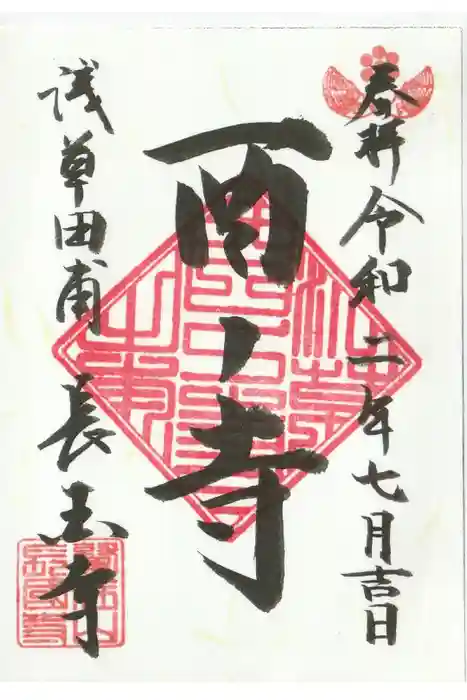 奉拝 令和二年七月吉日
酉ノ寺
浅草田甫 長国寺